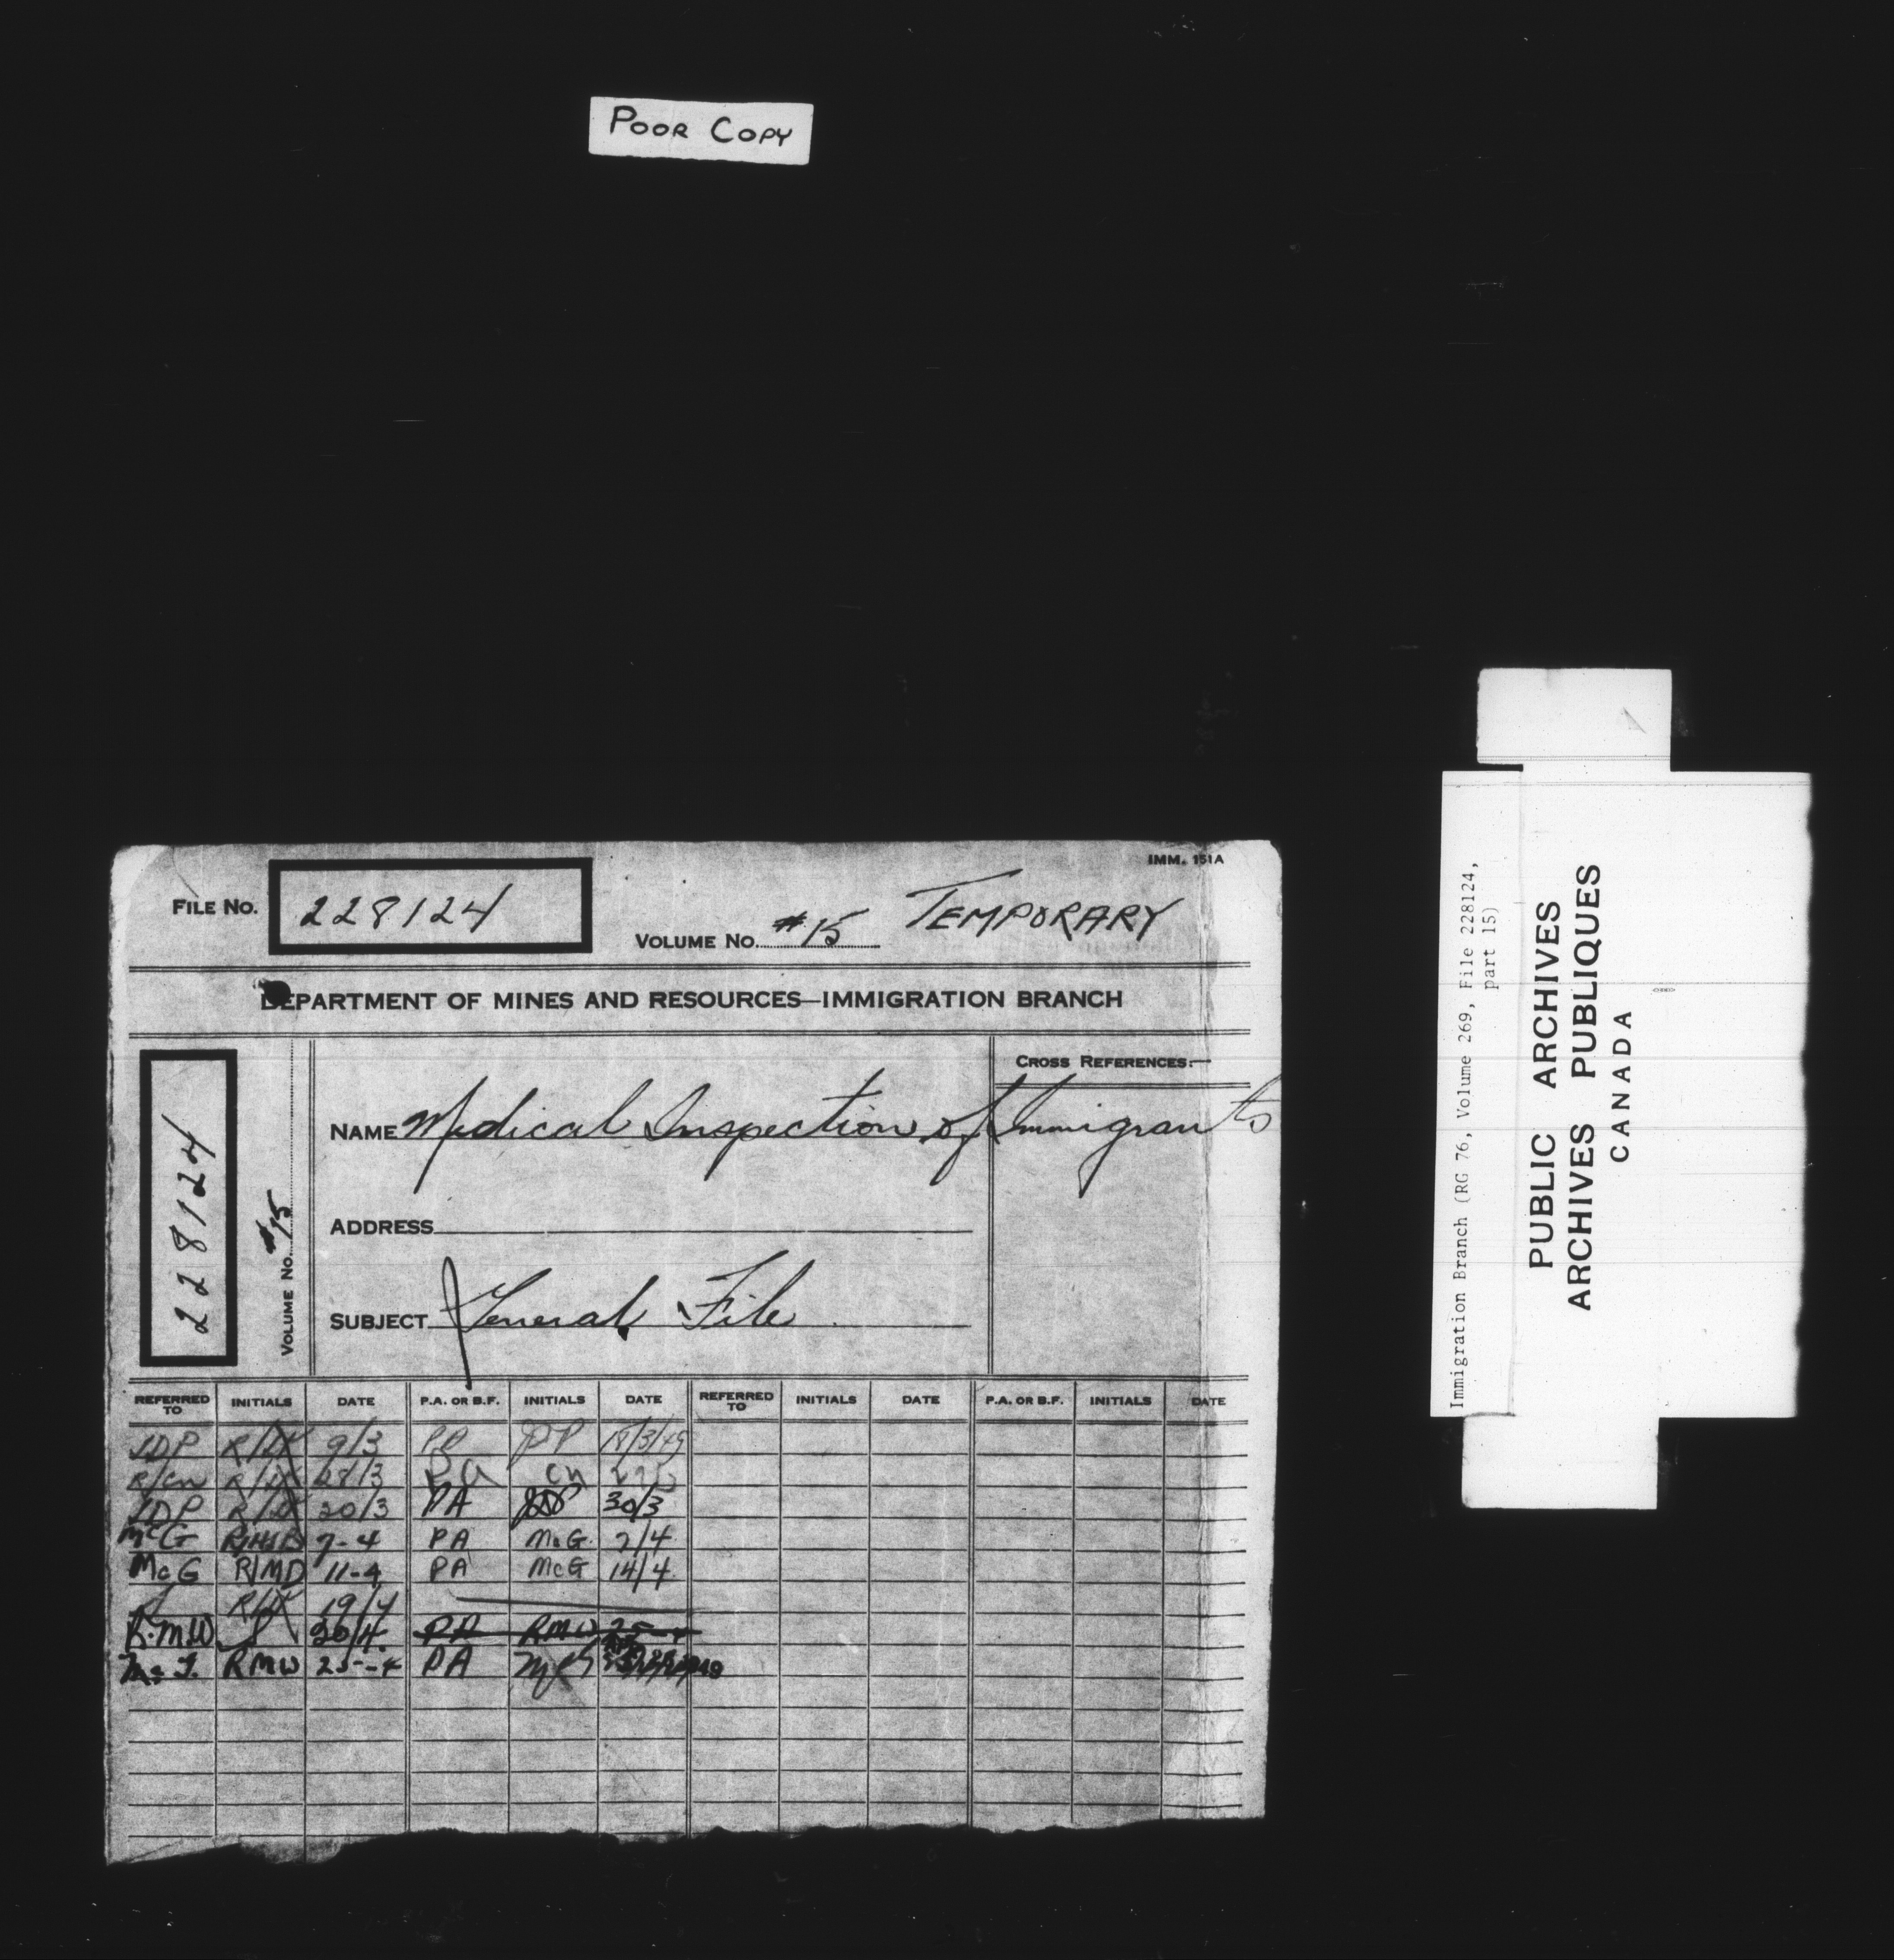 POOR COPY
IMM. 151A
FILE No. 228124
VOLUME No. #15 TEMPORARY
DEPARTMENT OF MINES AND RESOURCES—IMMIGRATION BRANCH
228124
VOLUME No. #15
CROSS REFERENCES:—
NAME Medical Inspection of Immigrants
ADDRESS
SUBJECT General File
REFERRED TO INITIALS DATE P.A. OR B.F. INITIALS DATE REFERRED TO INITIALS DATE P.A. OR B.F. INITIALS DATE
JDP 9/3 18/3/49
28/3
JDP 30/3 PA JDP 30/3
McG 7-4 PA McG. 7/4
McG R/MD 11-4 PA McG 14/4
19/4
R.M.W 20/4 PA RMW 25-4
RMW 25-4 PA
Immigration Branch (RG 76, Volume 269, File 228124,
part 15)
PUBLIC ARCHIVES
ARCHIVES PUBLIQUES
CANADA